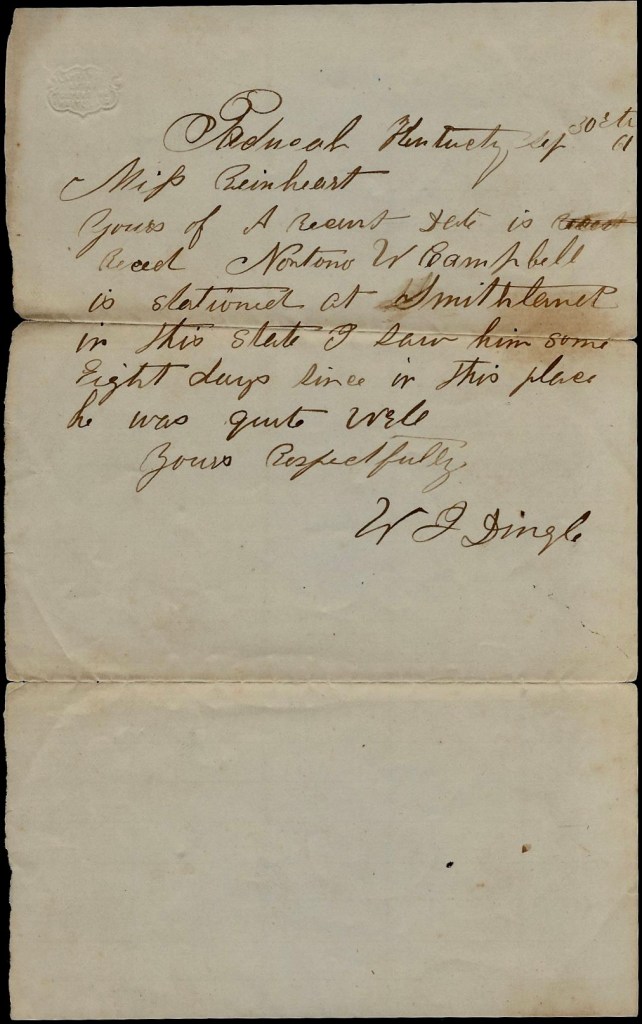 Paducah Kentucky Sep 30th 61
Miss Reinheart
Yours of A Recent Date is
Reced Nortono W Campbell
is stationed at Smithland
in this state I saw him some
Eight days since in this place
he was quite Well
Yours Respectfully
W J Dingle